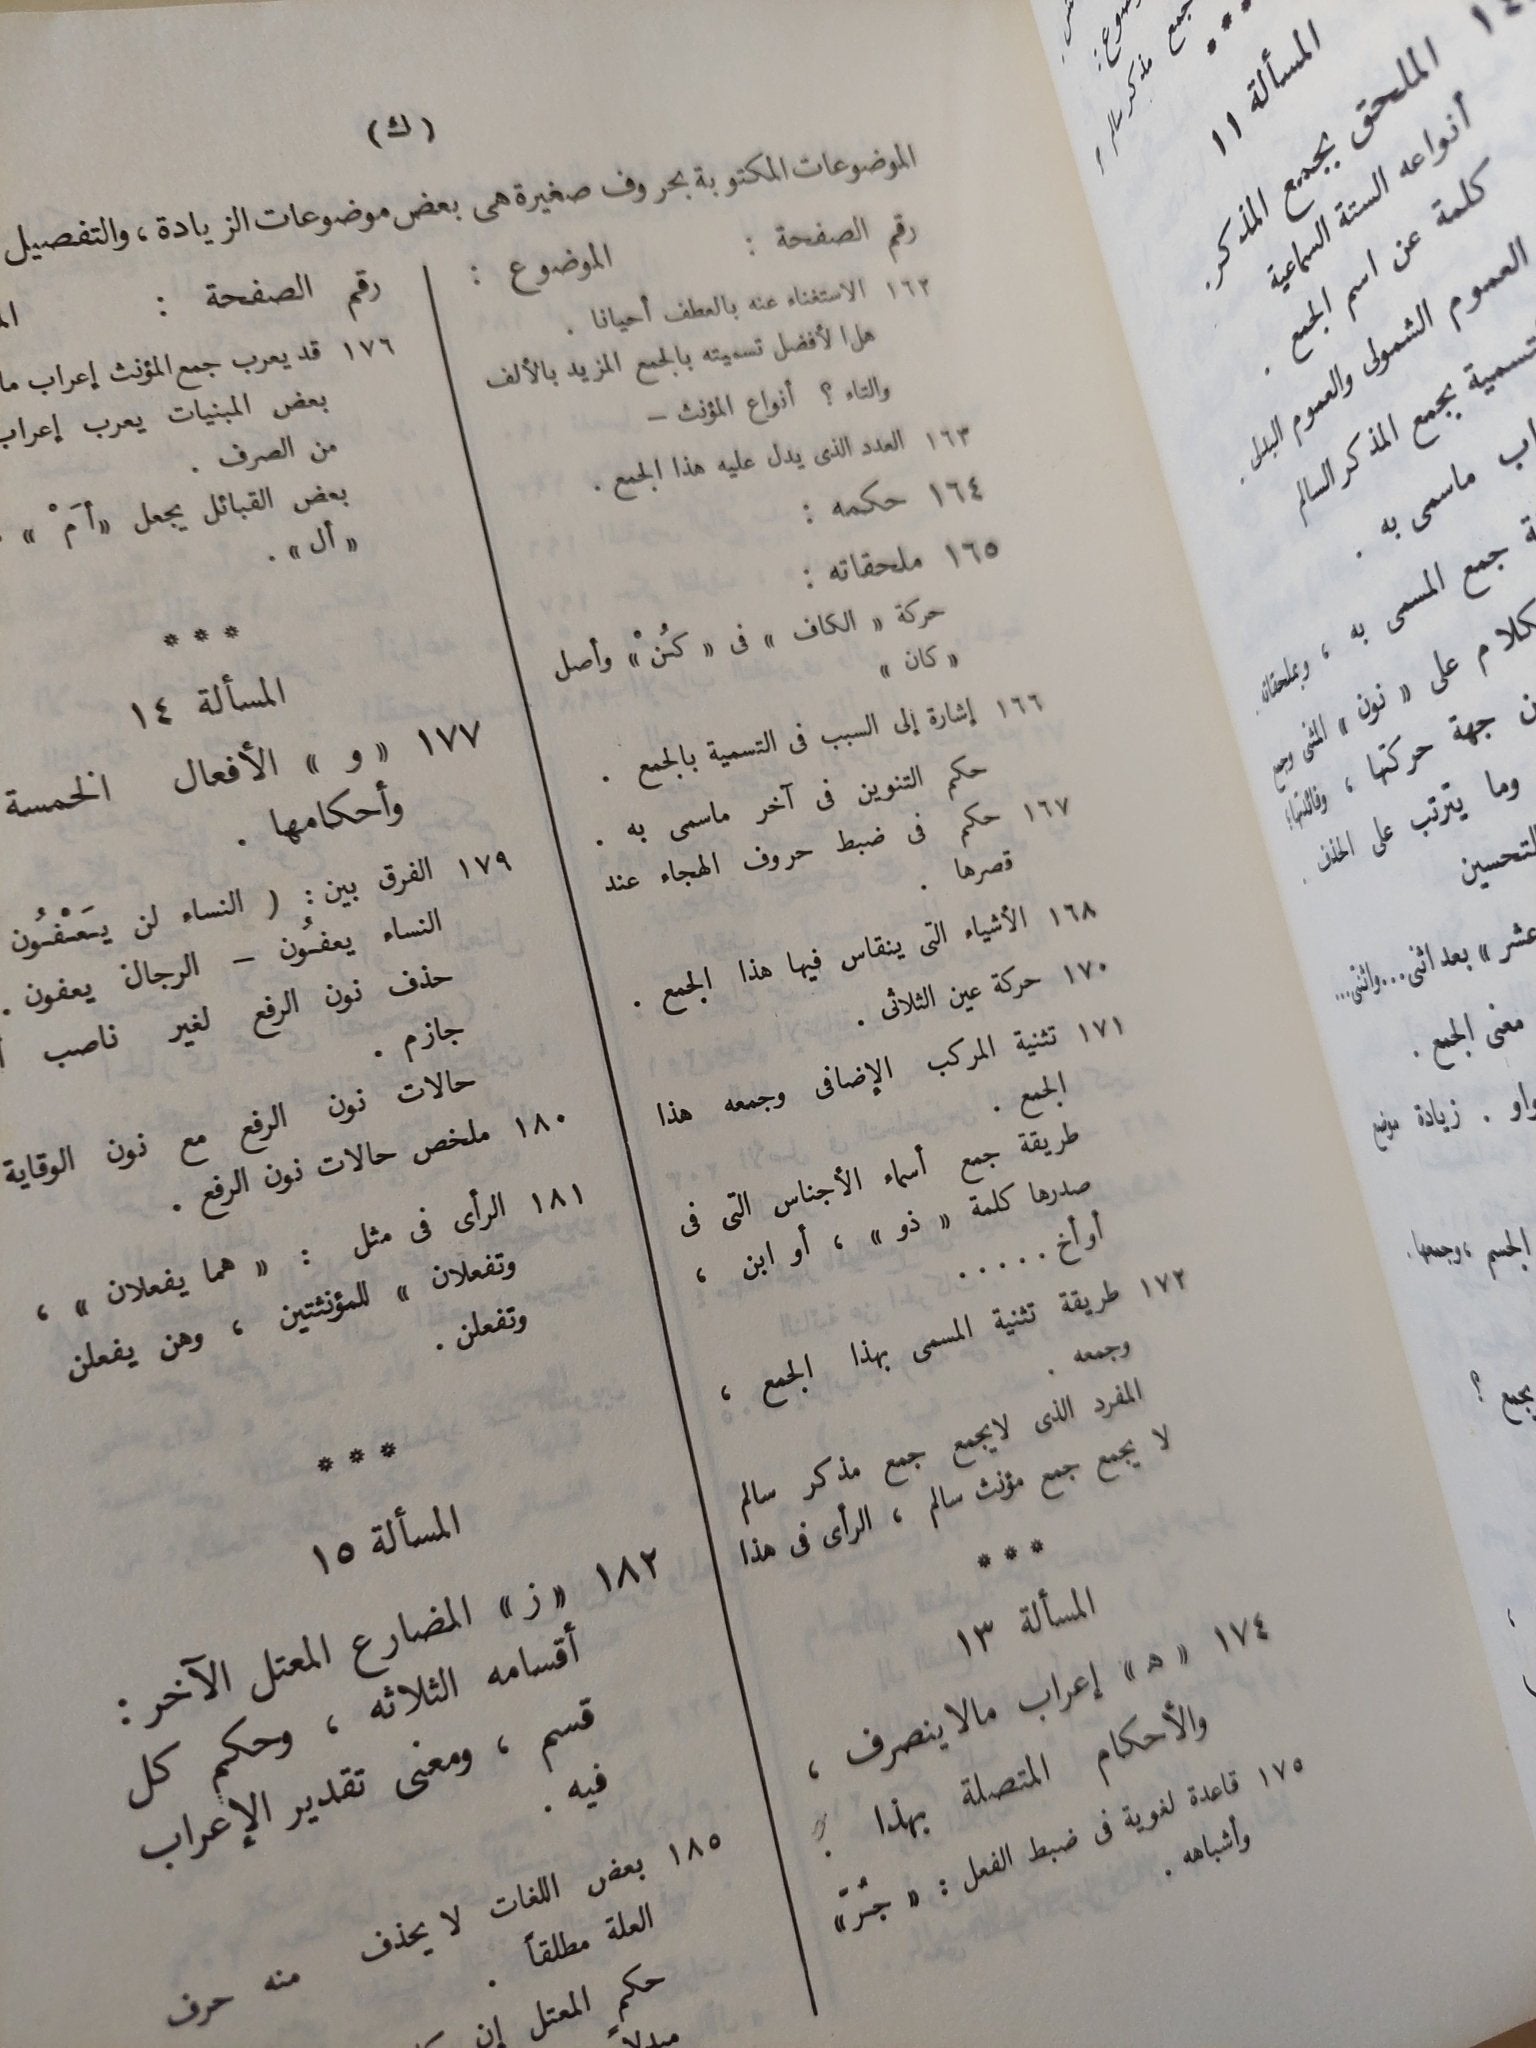 (ك)
الموضوعات المكتوبة بحروف صغيرة هى بعض موضوعات الزيادة ، والتفصيل
رقم الصفحة : الموضوع :
١٦٢ الاستغناء عنه بالعطف أحيانا .
هل الأفضل تسميته بالجمع المزيد بالألف
والتاء ؟ أنواع المؤنث –
١٦٣ العدد الذى يدل عليه هذا الجمع .
١٦٤ حكمه :
١٦٥ ملحقاته :
حركة « الكاف » فى « كُنْ » وأصل
« كان »
١٦٦ إشارة إلى السبب فى التسمية بالجمع .
حكم التنوين فى آخر ماسمى به .
١٦٧ حكم فى ضبط حروف الهجاء عند
قصرها .
١٦٨ الأشياء التى ينقاس فيها هذا الجمع .
١٧٠ حركة عين الثلاثى .
١٧١ تثنية المركب الإضافى وجمعه هذا
الجمع .
طريقة جمع أسماء الأجناس التى فى
صدرها كلمة « ذو » ، أو ابن ،
أو أخ . . . . .
١٧٢ طريقة تثنية المسمى بهذا الجمع ،
وجمعه .
المفرد الذى لايجمع جمع مذكر سالم
لا يجمع جمع مؤنث سالم ، الرأى فى هذا
***
المسألة ١٣
١٧٤ « ه » إعراب مالاينصرف ،
والأحكام المتصلة بهذا .
١٧٥ قاعدة لغوية فى ضبط الفعل : « جُرّ »
وأشباهه .
رقم الصفحة :
١٧٦ قد يعرب جمع المؤنث إعراب ما
بعض المبنيات يعرب إعراب
من الصرف .
بعض القبائل يجعل « أَمْ »
« أل » .
***
المسألة ١٤
١٧٧ « و » الأفعال الخمسة
وأحكامها .
١٧٩ الفرق بين : ( النساء لن يَعْفُون
النساء يعفُون – الرجال يعفون .
حذف نون الرفع لغير ناصب
جازم .
حالات نون الرفع مع نون الوقاية
١٨٠ ملخص حالات نون الرفع .
١٨١ الرأى فى مثل : « هما يفعلان » ،
وتفعلان » للمؤنثتين ، وهن يفعلن
وتفعلن .
***
المسألة ١٥
١٨٢ « ز » المضارع المعتل الآخر :
أقسامه الثلاثه ، وحكم كل
قسم ، ومعنى تقدير الإعراب
فيه .
١٨٥ بعض اللغات لا يحذف منه حرف
العلة مطلقاً .
حكم المعتل إن
جمع مذكر سالم
***
المسألة ١١
الملحق بجمع المذكر.
أنواعه الستة السماعية
كلمة عن اسم الجمع .
العموم الشمولى والعموم البدلى .
تسمية بجمع المذكر السالم
ماسمى به .
جمع المسمى به ، وبملحقاته.
على « نون » المثنى وجمع
جهة حركتها ،
وما يترتب على الحذف .
التحسين
عشر » بعد اثنى...واثنتى...
معنى الجمع .
زيادة موضع
الجسم ، وجمعها.
يجمع ؟